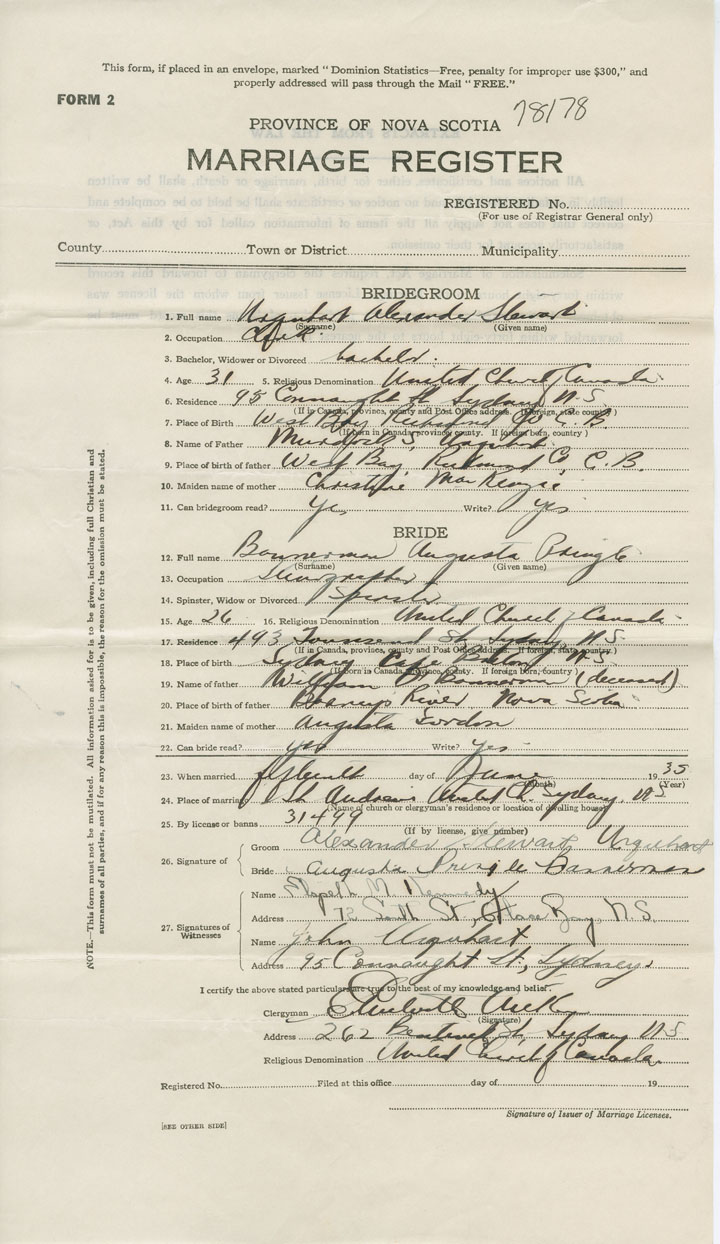 This form, if placed in an envelope, marked "Dominion Statistics—Free, penalty for improper use $300," and
properly addressed will pass through the Mail "FREE."
FORM 2
78178
PROVINCE OF NOVA SCOTIA
MARRIAGE REGISTER
REGISTERED No.
(For use of Registrar General only)
County Town or District Municipality
BRIDEGROOM
1. Full name Urquhart Alexander Stewart
(Surname) (Given name)
2. Occupation Clerk
3. Bachelor, Widower or Divorced bachelor.
4. Age 31 5. Religious Denomination United Church of Canada
6. Residence 95 Connaught St. Sydney N.S.
(If in Canada, province, county and Post Office address. If foreign, state country)
7. Place of Birth West Bay Richmond Co. C.B.
(If born in Canada, province, county. If foreign born, country)
8. Name of Father Murdoch S. Urquhart
9. Place of birth of father West Bay, Richmond Co. C.B.
10. Maiden name of mother Christie MacKenzie
11. Can bridegroom read? Yes Write? yes
BRIDE
12. Full name Bannerman Augusta Pringle
(Surname) (Given name)
13. Occupation Stenographer
14. Spinster, Widow or Divorced Spinster
15. Age 26 16. Religious Denomination United Church of Canada
17. Residence 493 Townsend St. Sydney N.S.
(If in Canada, province, county and Post Office address. If foreign, state country)
18. Place of birth Sydney Cape Breton N.S.
(If born in Canada, province, county. If foreign born, country)
19. Name of father William Bannerman (deceased)
20. Place of birth of father Barneys River, Nova Scotia
21. Maiden name of mother Augusta Gordon
22. Can bride read? yes Write? Yes
23. When married fifteenth day of June 1935
(Month) (Year)
24. Place of marriage St. Andrews United C. Sydney, N.S.
(Name of church or clergyman's residence or location of dwelling house)
25. By license or banns 31499
(If by license, give number)
26. Signature of
Groom Alexander Stewart Urquhart
Bride Augusta Pringle Bannerman
27. Signatures of Witnesses
Name Elspeth M. Kennedy
Address 72 South St., Glace Bay, N.S.
Name John Urquhart
Address 95 Connaught St., Sydney.
I certify the above stated particulars are true to the best of my knowledge and belief.
Clergyman
(Signature)
Address 262 Bentinck St. Sydney N.S.
Religious Denomination United Church of Canada.
Registered No. Filed at this office day of 19
Signature of Issuer of Marriage Licenses.
[SEE OTHER SIDE]
NOTE.—This form must not be mutilated. All information asked for is to be given, including full Christian and
surnames of all parties, and if for any reason this is impossible, the reason for the omission must be stated.